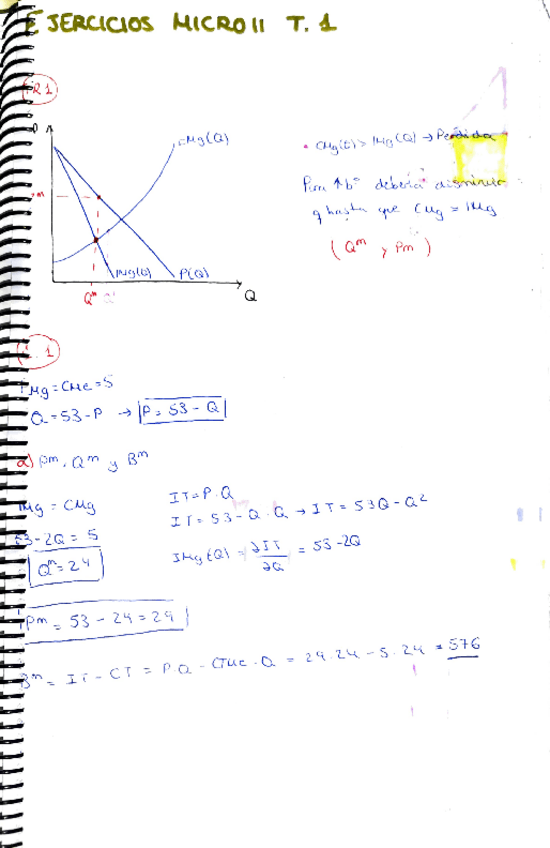 EJERCICIOS MICRO II T. 1
CMg(Q)
• CMg(Q) > IMg(Q) → Pérdida
Para ↑bº debería disminuir
q hasta que CMg = IMg
(Qᵐ y Pm)
IMg(Q) P(Q)
Qᵐ Q
. 1
Mg = CMe = 5
Q = 53 - P → P = 53 - Q
a) Pm, Qᵐ y Bᵐ
IMg = CMg
IT = P · Q
IT = 53 - Q · Q → IT = 53Q - Q²
53 - 2Q = 5
IMg(Q) = ∂IT/∂Q = 53 - 2Q
Qᵐ = 24
Pm = 53 - 24 = 29
Bᵐ = IT - CT = P·Q - CTMe·Q = 29·24 - 5·24 = 576